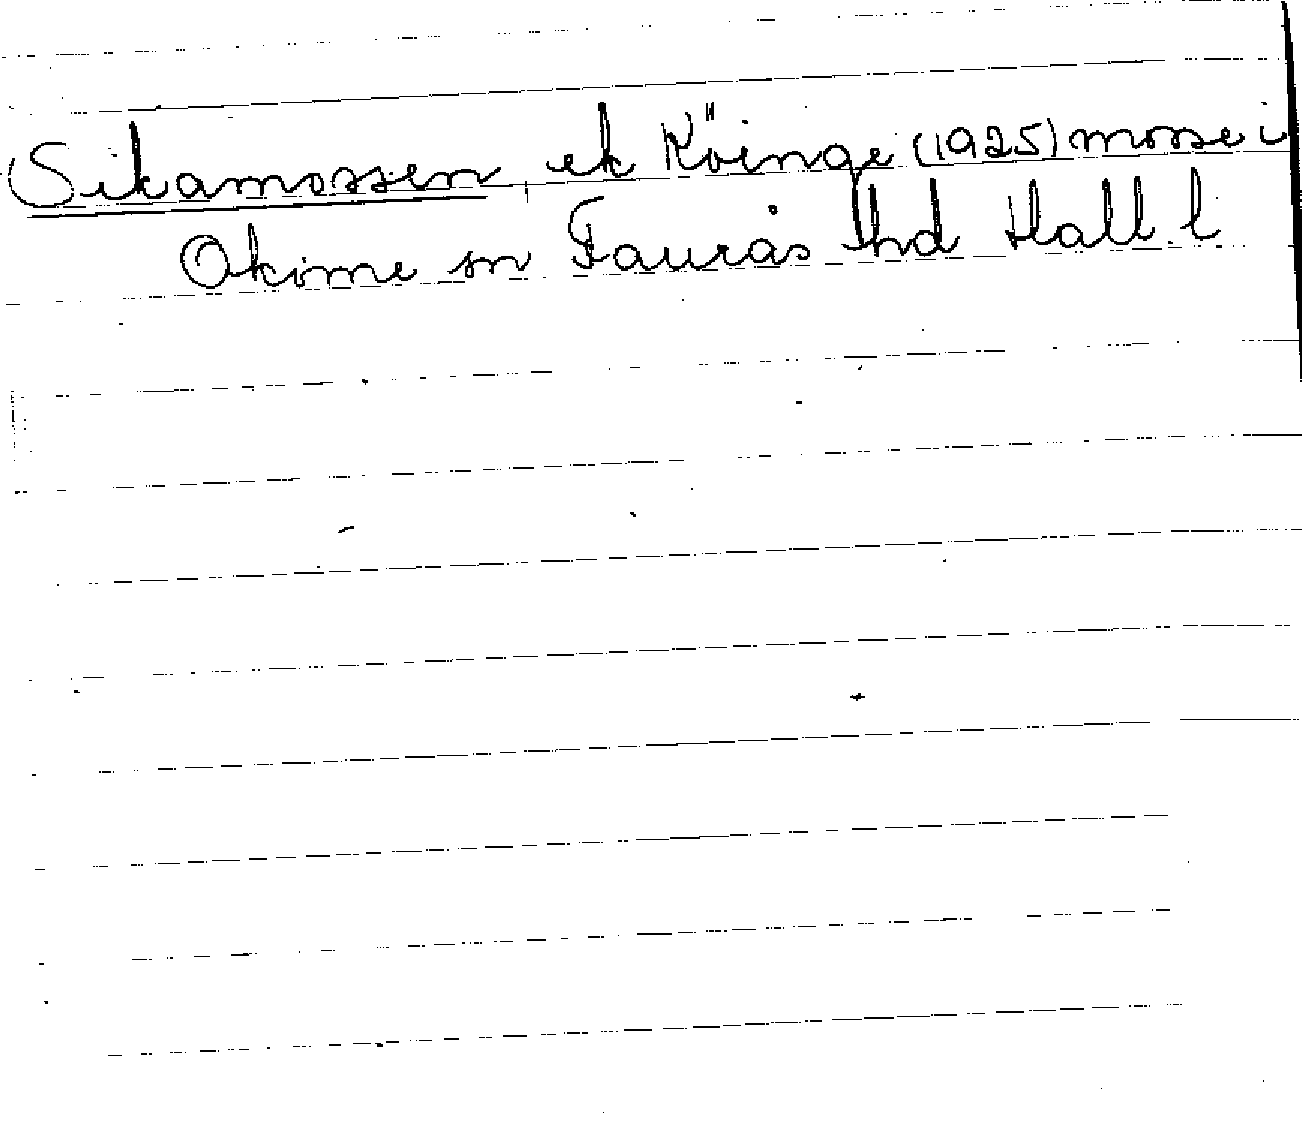 Sikamossen, ek Köinge (1925) mosse i
Okome sn Faurås hd Hall. l